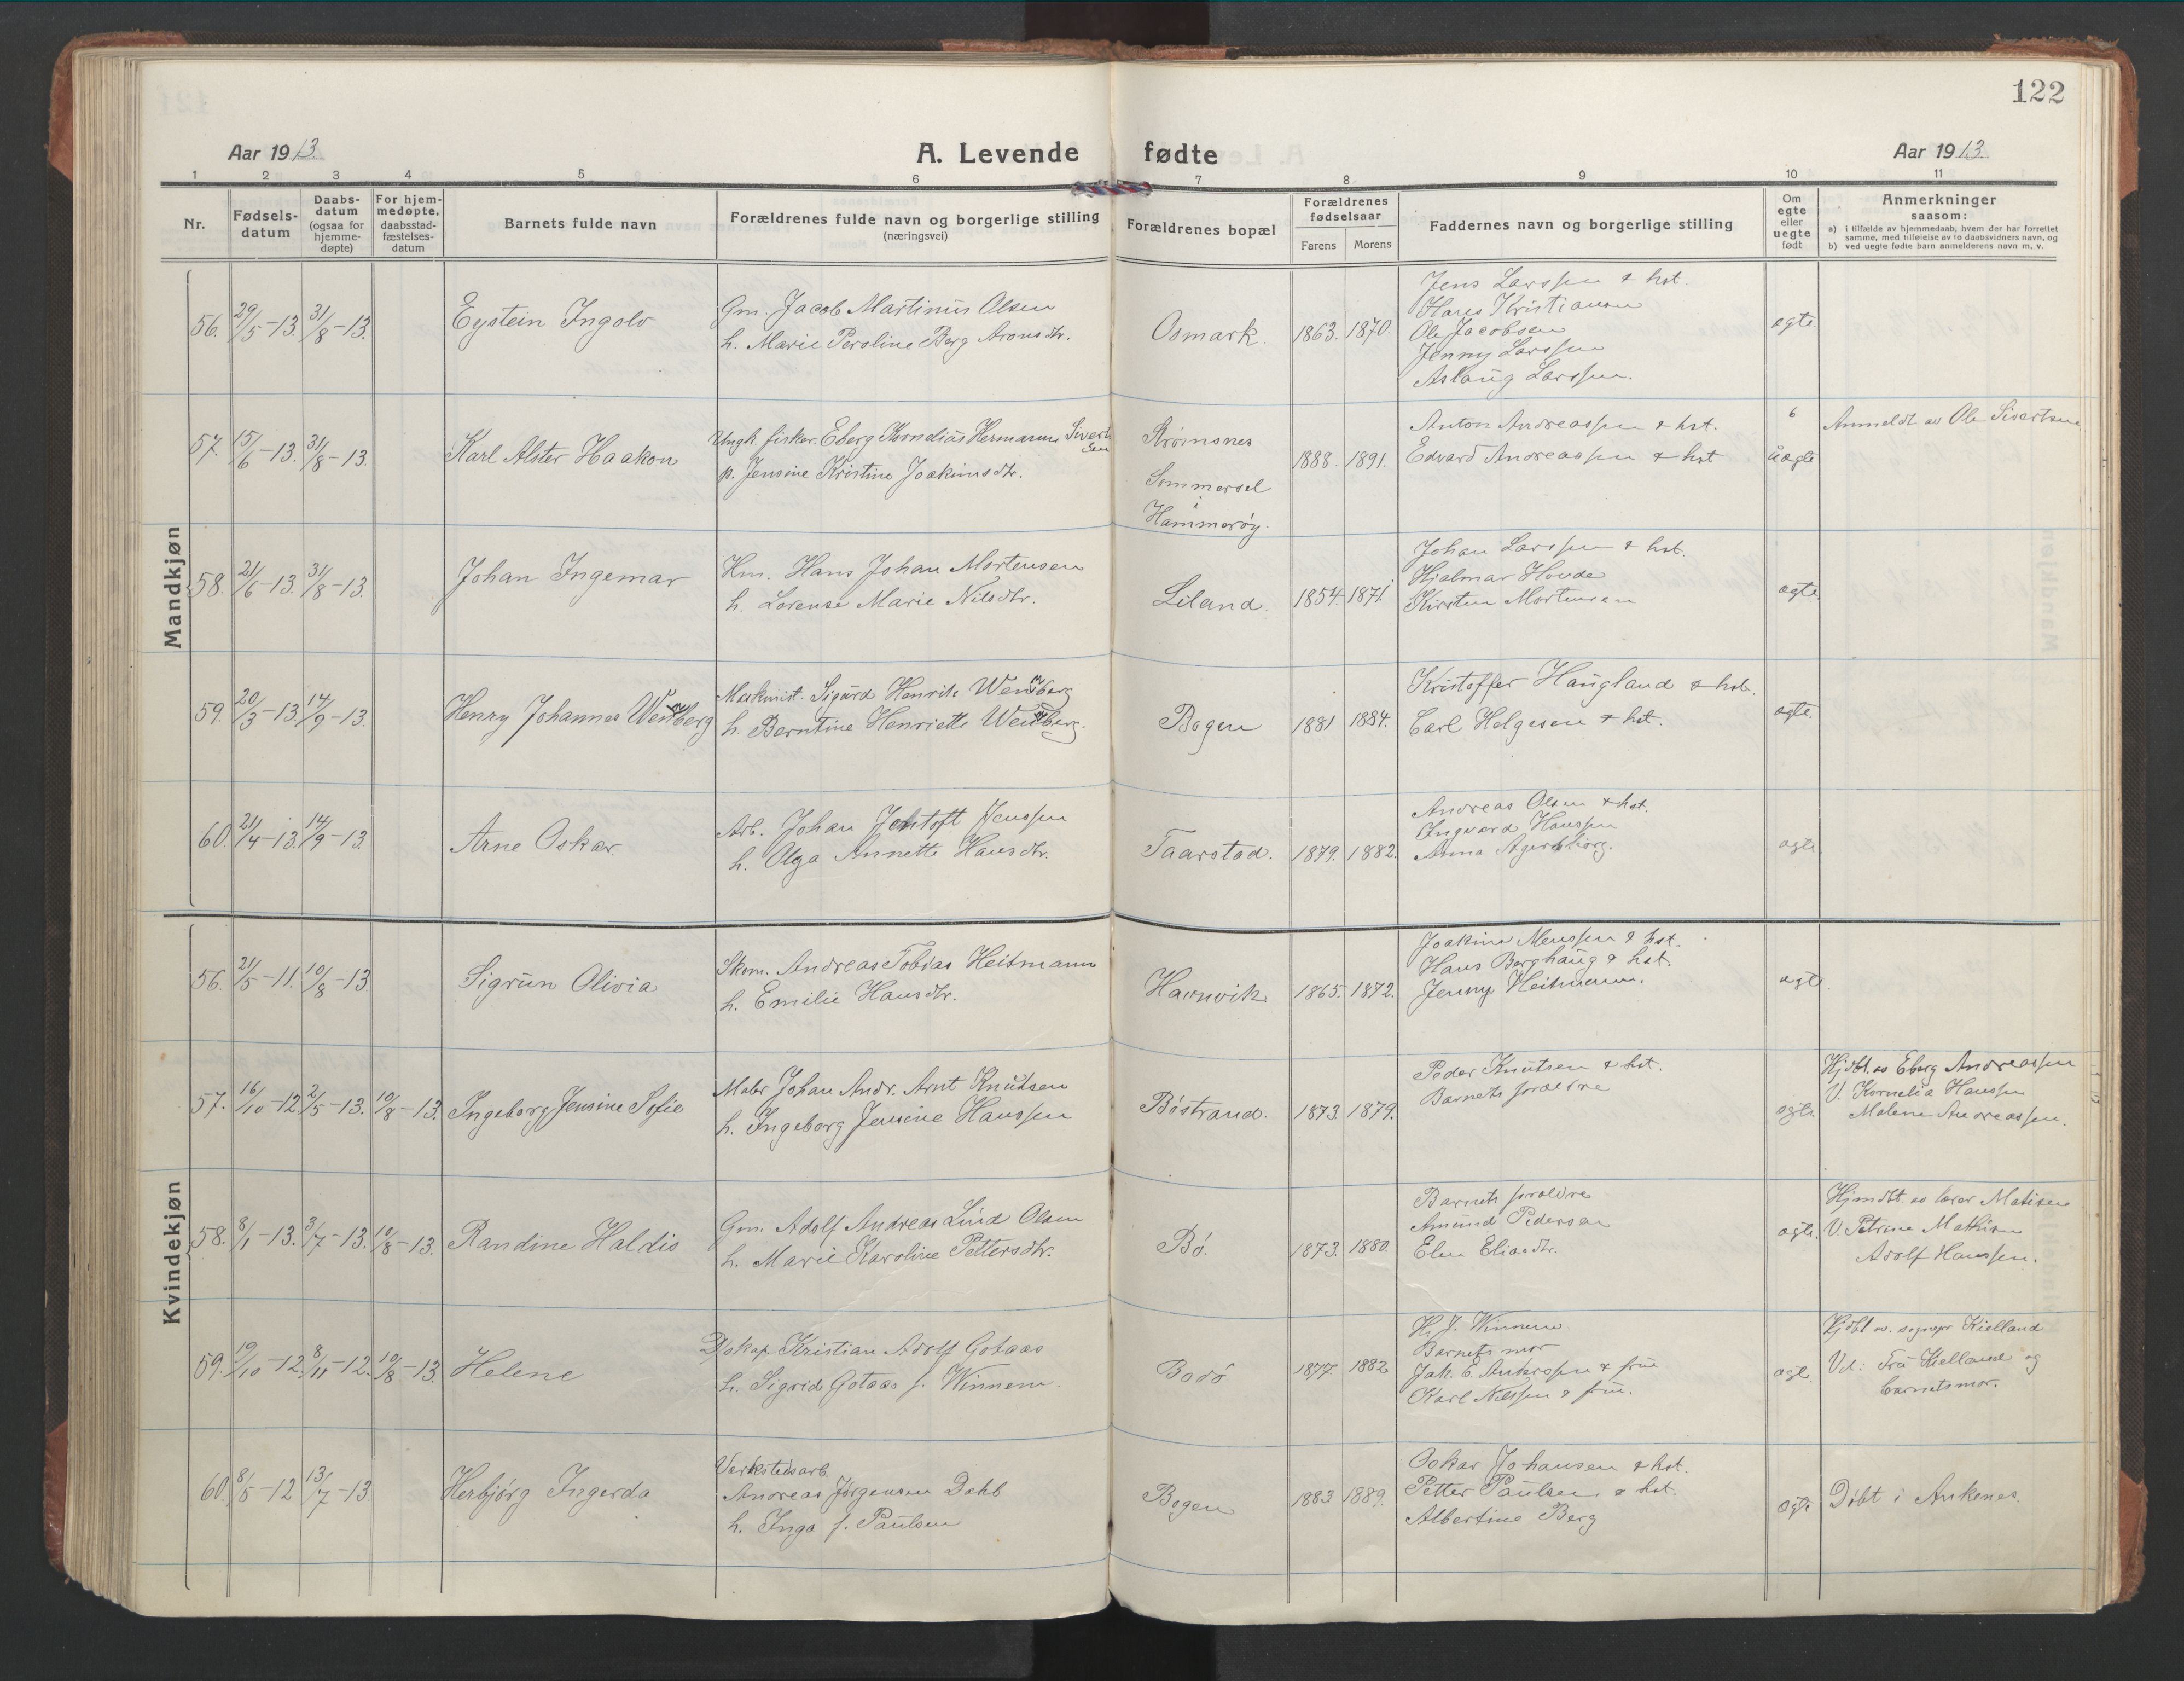 122
Aar 1913
A. Levende fødte
Aar 1913.
1 2 3 4 5 6 7 8 9 10 11
Nr.
Fødsels-
datum
Daabs-
datum
(ogsaa for
hjemme-
døpte)
For hjem-
medøpte,
daabsstad-
fæstelses-
datum
Barnets fulde navn
Forældrenes fulde navn og borgerlige stilling
(næringsvei)
Forældrenes bopæl
Forældrenes
fødselsaar
Farens Morens
Faddernes navn og borgerlige stilling
Om
egte
eller
uegte
født
Anmerkninger
saasom:
a) i tilfælde av hjemmedaab, hvem der har forrettet
samme, med tilføielse av to daabsvidners navn, og
b) ved uegte fødte barn anmelderens navn m. v.
Mandkjøn
56. 29/5-13. 31/8-13.
Eystein Ingolv
Gm. Jacob Martinus Olsen
h. Marie Peroline Berg Aronsdtr.
Osmark. 1863. 1870.
Jens Larssen & hst.
Hans Kristiansen
Ole Jacobsen
Jenny Larssen
Aslaug Larssen.
egte
57. 15/6-13. 31/8-13.
Karl Alster Haakon
Ungk. fisker. Eberg Korneliãs Hermann Sivert
sen
p. Jensine Kristine Joakimsdtr.
Strømsnes
Sommersel
i
Hammerøy.
1888. 1891.
Anton Andreassen & hst.
Edvard Andreassen & hst
6
uegte
Anmeldt av Ole Sivertsen
58. 21/6-13. 31/8-13.
Johan Ingemar
Hm. Hans Johan Mortensen
h. Lorense Marie Nilsdtr.
Liland. 1854. 1871.
Johan Larssen & hst.
Hjalmar Hovde
Kirsten Mortensen
egte.
59. 20/3-13. 14/9-13.
Henry Johannes Wennberg
Maskinist. Sigurd Henrik Wennberg
h. Berntine Henriette Wennberg.
Bogen 1881 1884.
Kristoffer Haugland & hst.
Carl Helgesen & hst.
egte.
60. 21/4-13. 14/9-13
Arne Oskar
Arb. Johan Jentoft Jenssen
h. Olga Annette Hansdtr.
Taarstad. 1879. 1882.
Andreas Olsen & hst.
Ingvard Hanssen
Anna Agersborg.
egte
Kvindekjøn
56. 21/5-11. 10/8-13.
Sigrun Olivia
Skom. Andreas Tobias Heitmann
h. Emilie Hansdtr.
Havnvik 1865. 1872.
Joakim Menssen & hst.
Hans Berghaug & hst.
Jenny Heitmann.
egte
57. 16/10-12. 2/5-13. 10/8-13.
Ingeborg Jensine Sofie
Maler Johan Andr. Arnt Knutsen
h. Ingeborg Jensine Hanssen
Bøstrand. 1873. 1879.
Peder Knutsen & hst.
Barnets forældre
egte.
Hjdbt. av Eberg Andreassen
V. Kornelia Hanssen
Malene Andreassen.
58. 8/1-13. 3/7-13. 10/8-13.
Randine Haldis
Gm. Adolf Andreas Lind Olsen
h. Marie Karoline Pettersdtr.
Bø. 1873. 1880.
Barnets forældre
Amund Pedersen
Elen Eliasdtr.
egte.
Hjmdbt av lærer Matisen
V. Petrine Mathisen
Adolf Hanssen.
59. 19/10-12. 8/11-12. 10/8-13.
Helene
D/skap. Kristian Adolf Gotaas
h. Sigrid Gotaas f. Winnem.
Bodø 1877. 1882
H. J. Winnem
Barnets mor
Jak. E. Ankerssen & frue
Karl Nilssen & frue.
egte.
Hjdbt av. sognepr Kielland
Vd: Fru Kielland og
barnets mor.
60. 8/5-12 13/7-13.
Herbjørg Ingerda
Verkstedsarb.
Andreas Jørgensen Dahl
h. Inga f. Paulsen
Bogen 1883 1889.
Oskar Johansen & hst.
Petter Paulsen & hst.
Albertine Berg
egte
Døbt i Ankenes.